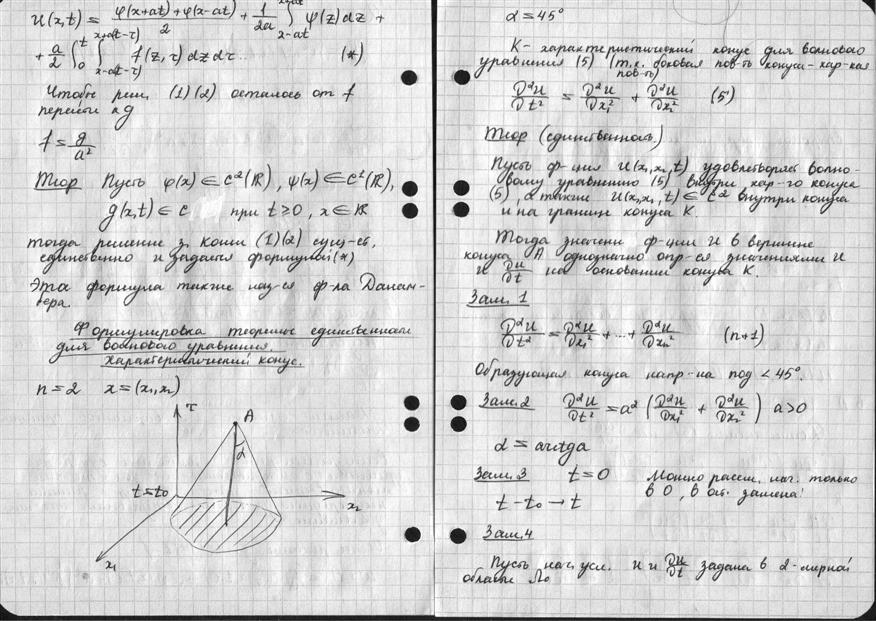 u(x,t) = φ(x+at)+φ(x-at)/2 + 1/2a ∫_{x-at}^{x+at} ψ(z)dz +
+ a/2 ∫_0^t ∫_{x-a(t-τ)}^{x+a(t-τ)} f(z,τ)dzdτ. (*)
Чтобы реш. (1)(2) осталось от f
перейти к g
f = g/a²
Теор Пусть φ(x) ∈ C²(ℝ), ψ(x) ∈ C¹(ℝ),
g(x,t) ∈ C при t ≥ 0, x ∈ ℝ
тогда решение з. Коши (1)(2) сущ-ет,
единственно и задается формулой (*)
Эта формула также наз-ся ф-ла Далам-
бера.
Формулировка теоремы единственности
для волнового уравнения.
Характеристический конус.
n=2 x=(x₁,x₂)
τ
A
α
t=t₀
x₂
x₁
α = 45°
K - характеристический конус для волнового
уравнения (5) (т.к. боковая пов-ть конуса - хар-кая
пов-ть)
∂²u/∂t² = ∂²u/∂x₁² + ∂²u/∂x₂² (5)
Теор (единственность)
Пусть ф-ция u(x₁,x₂,t) удовлетворяет волно-
вому уравнению (5) внутри хар-го конуса
(5), а также u(x₁,x₂,t) ∈ C² внутри конуса
и на границе конуса K.
Тогда значени ф-ции u в вершине
конуса A однозначно опр-ся значениями u
и ∂u/∂t на основании конуса K.
Зам. 1
∂²u/∂t² = ∂²u/∂x₁² + ... + ∂²u/∂xn² (n+1)
Образующая конуса напр-на под < 45°.
Зам. 2 ∂²u/∂t² = a² (∂²u/∂x₁² + ∂²u/∂x₂²) a>0
α = arctga
Зам. 3 t=0 Можно рассм. нач. только
t-t₀ → t в 0, в замена!
Зам. 4
Пусть нач. усл. u и ∂u/∂t задана в 2-мерной
области Ω₀